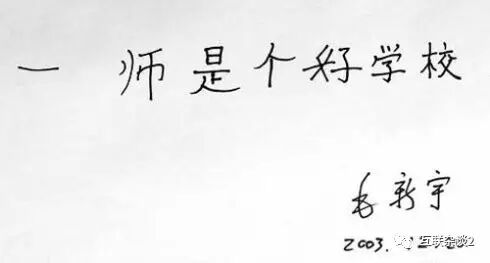 一师是个好学校
毛新宇
2003.
互联杂谈2